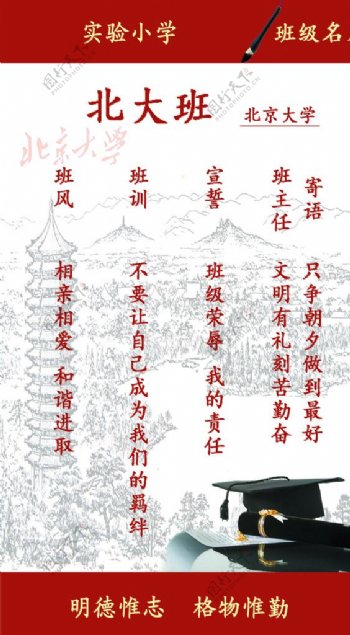 实验小学
班级名
北大班
北京大学
北京大学
寄语 只争朝夕做到最好
班主任 文明有礼刻苦勤奋
宣誓 班级荣辱 我的责任
班训 不要让自己成为我们的羁绊
班风 相亲相爱 和谐进取
明德惟志 格物惟勤